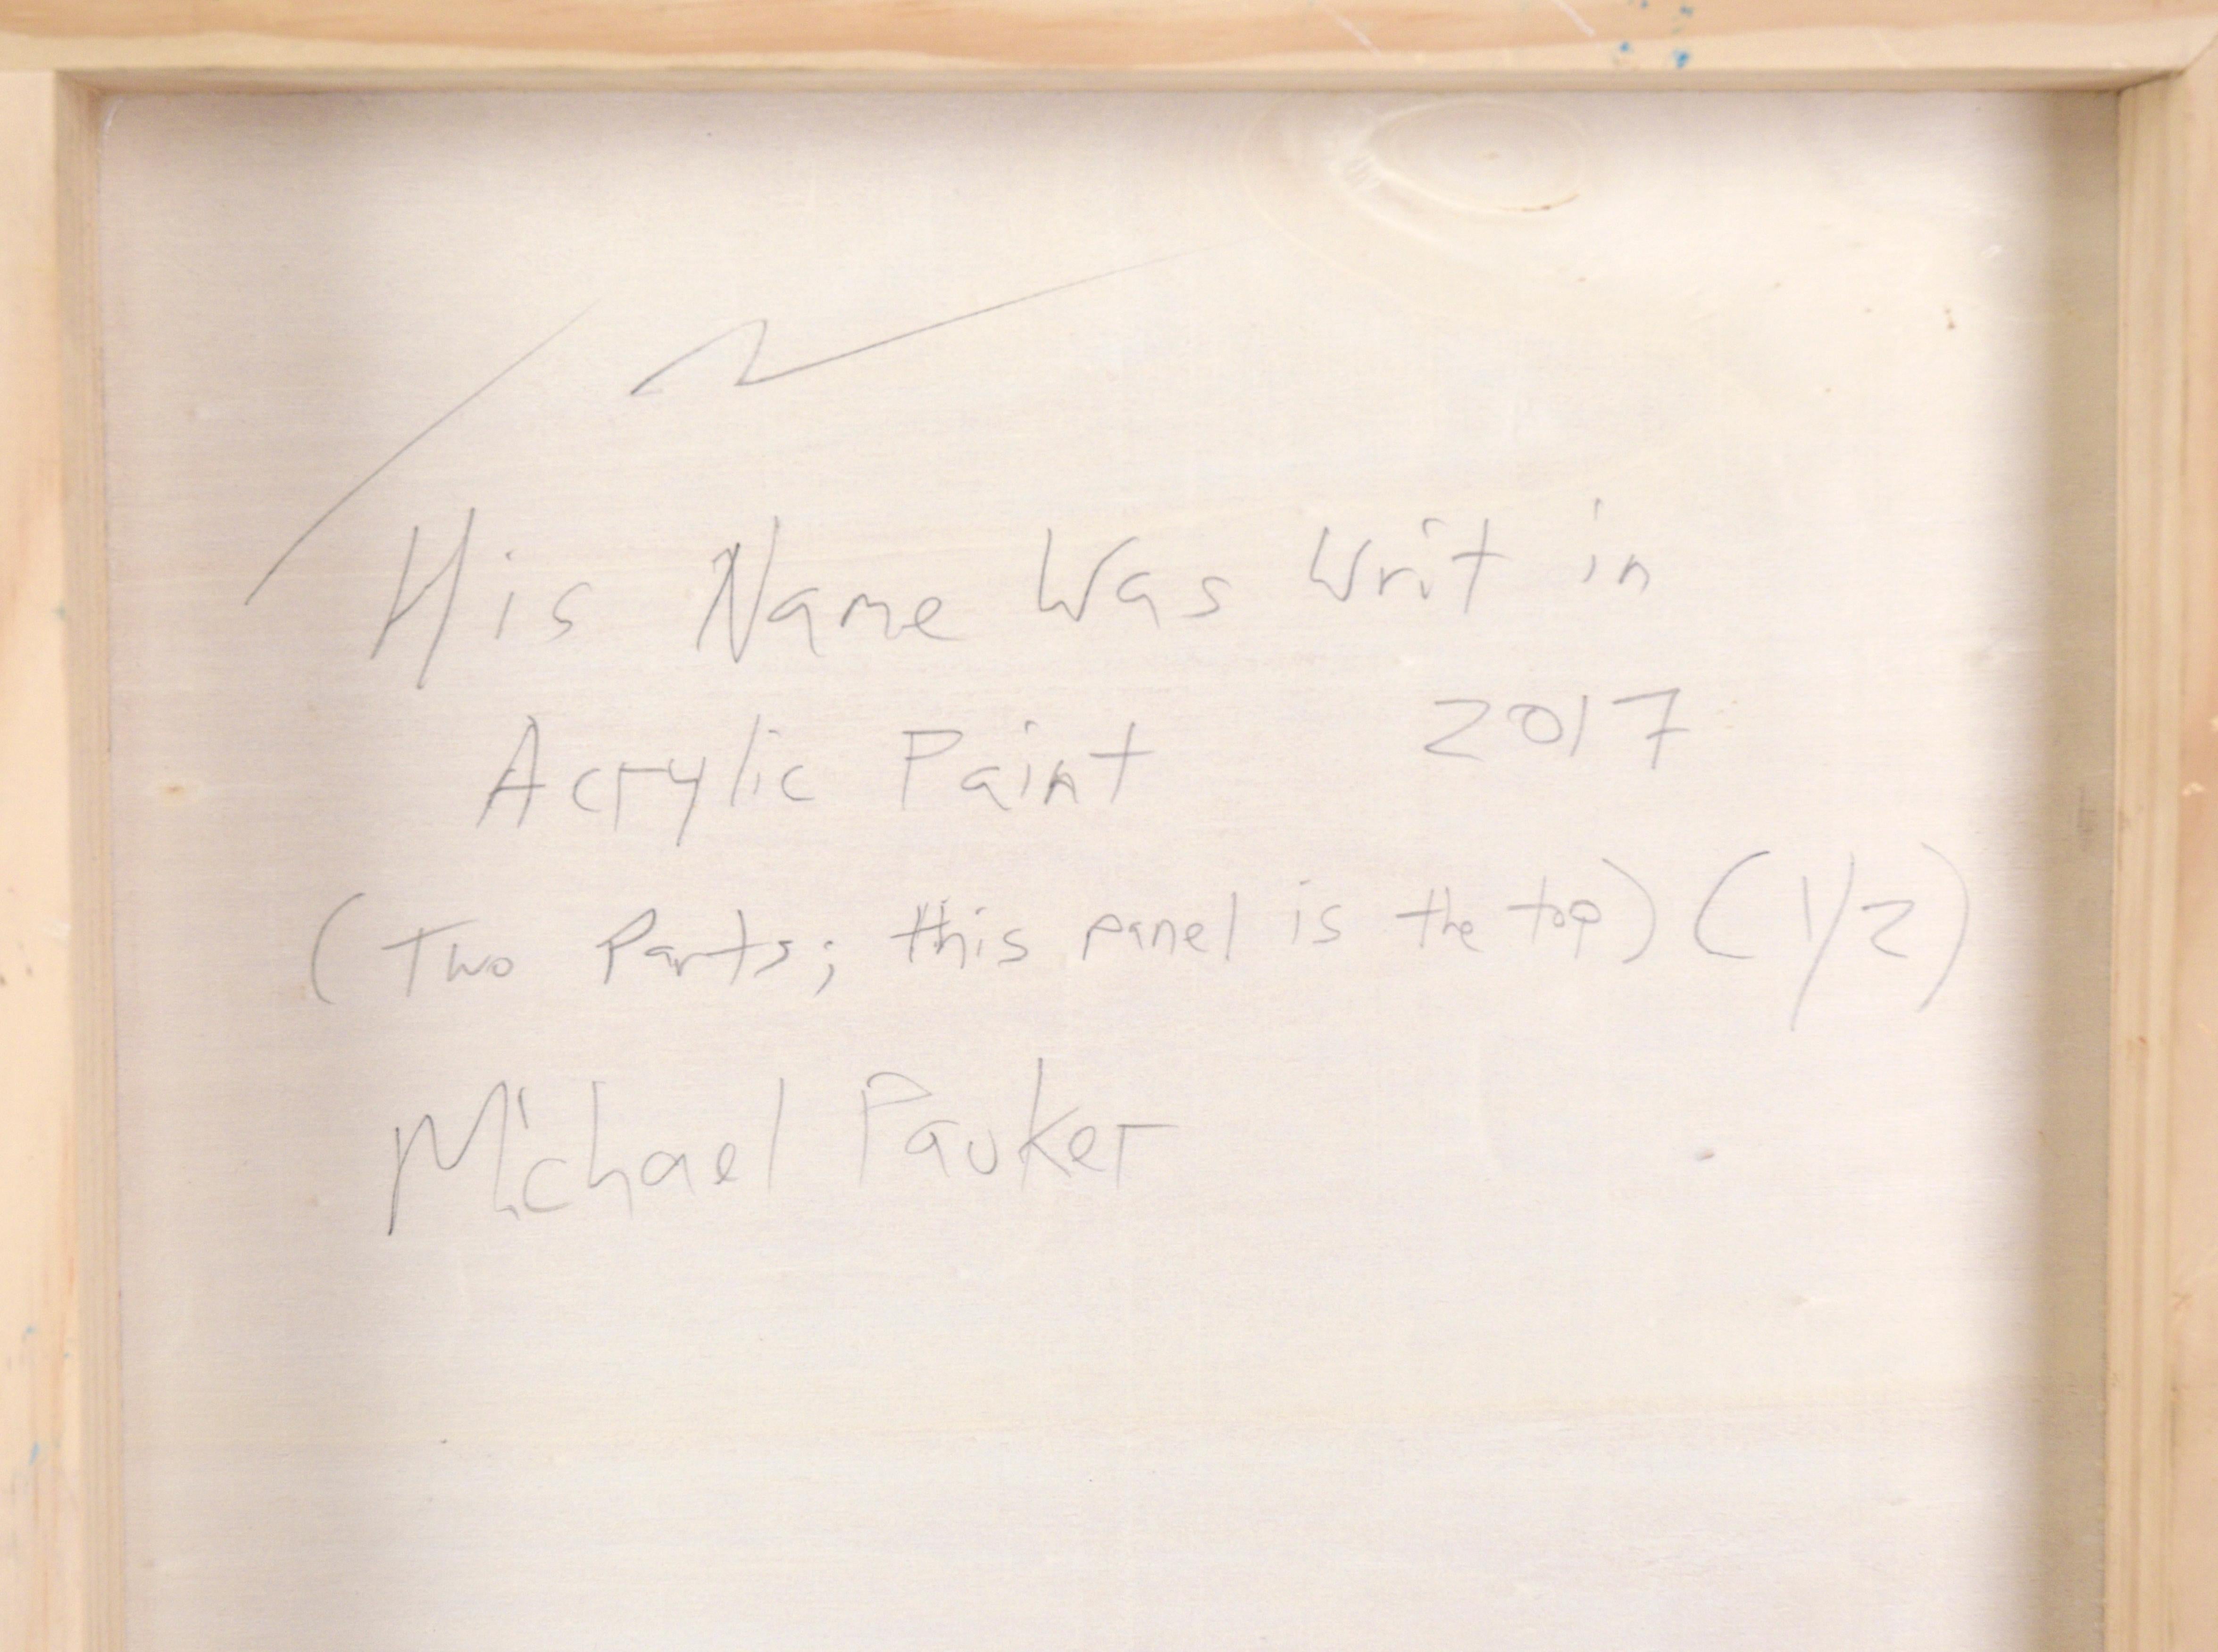 His Name Was Writ in
Acrylic Paint 2017
(Two Parts; this panel is the top) (1/2)
Michael Pauker